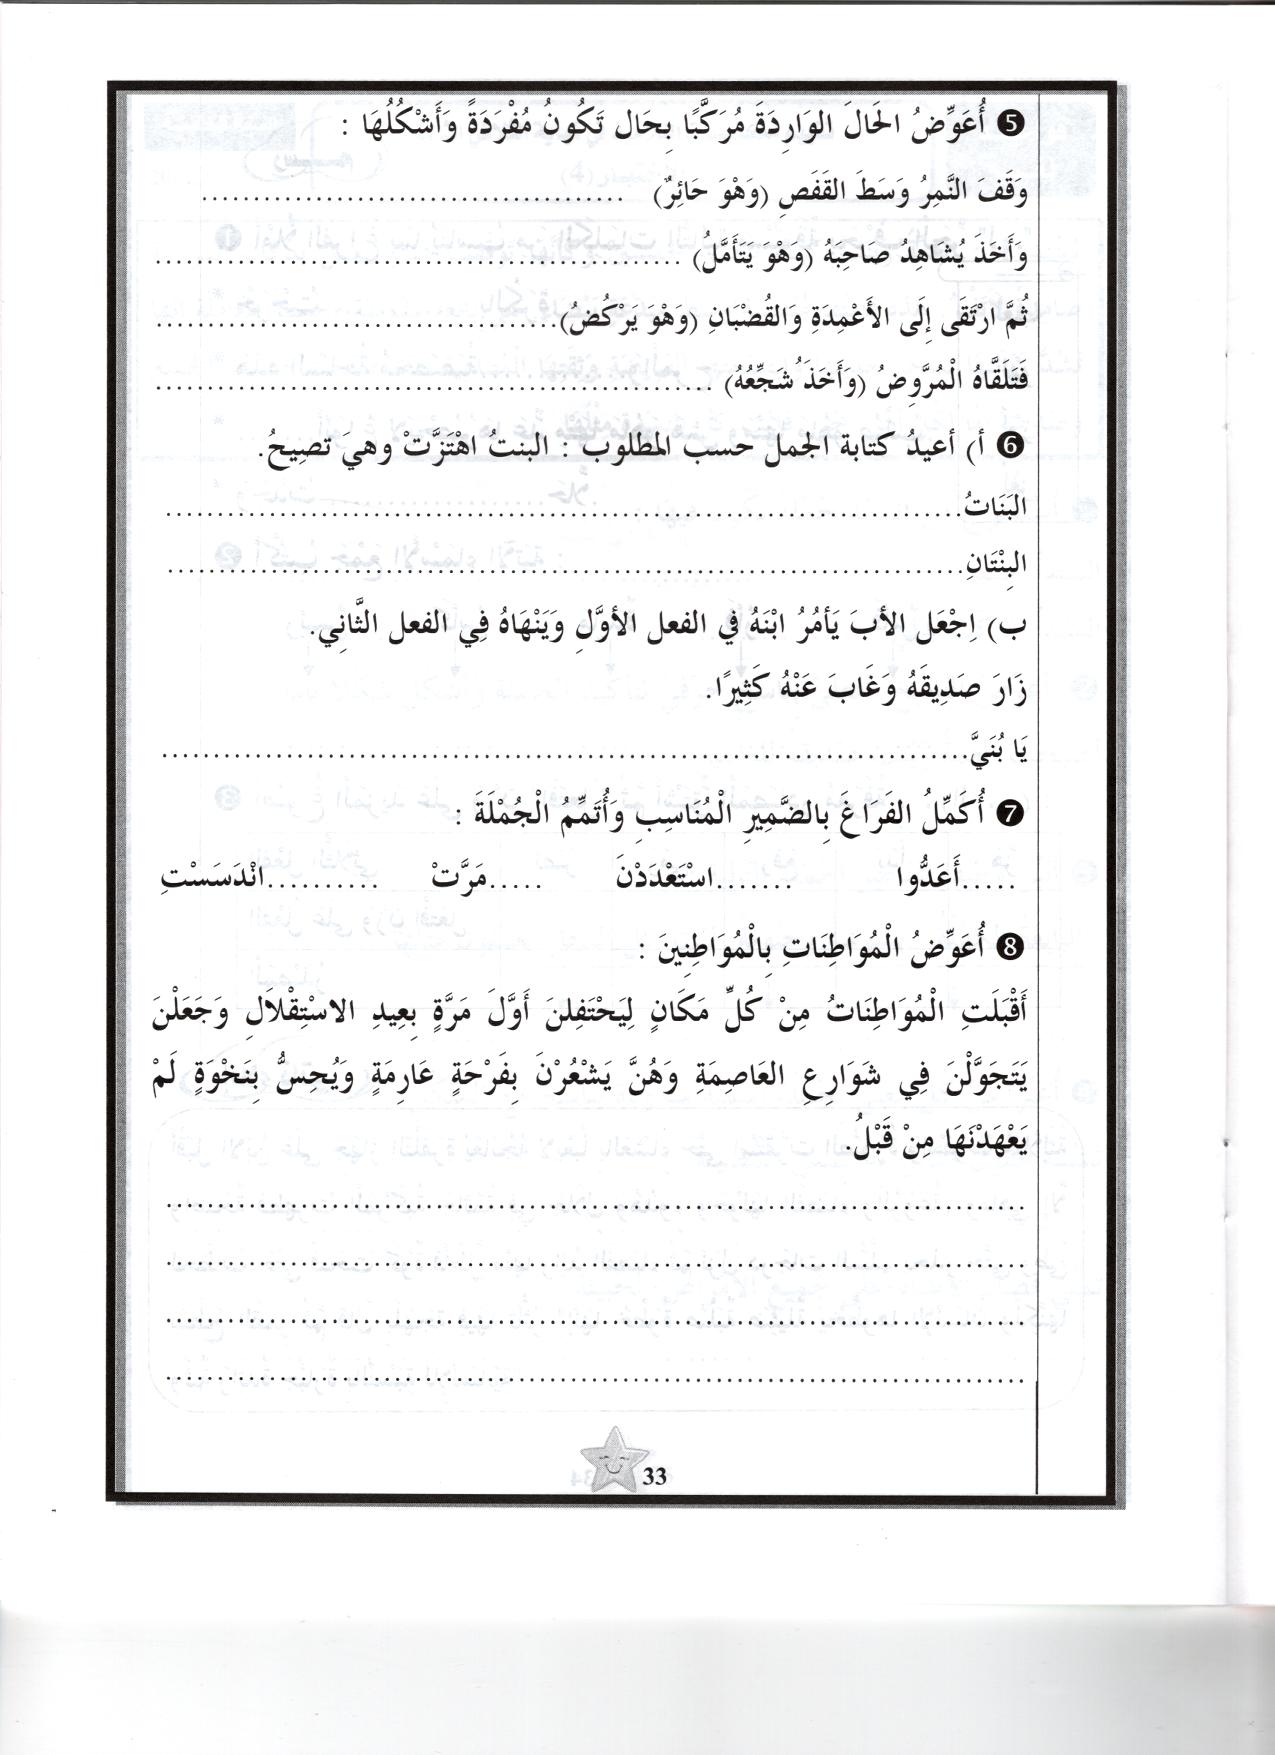 ❺ أُعَوِّضُ الحَالَ الوَارِدَةَ مُرَكَّبًا بِحَال تَكُونُ مُفْرَدَةً وَأَشْكُلُهَا :
وَقَفَ النَّمِرُ وَسَطَ القَفَصِ (وَهْوَ حَائِرٌ) ......................................
وَأَخَذَ يُشَاهِدُ صَاحِبَهُ (وَهْوَ يَتَأَمَّلُ) ...............................................
ثُمَّ ارْتَقَى إِلَى الأَعْمِدَةِ وَالقُضْبَانِ (وَهْوَ يَرْكُضُ)....................................
فَتَلَقَّاهُ الْمُرَّوِضُ (وَأَخَذَ ُشَجِّعُهُ) ..................................................
❻ أ) أعيدُ كتابة الجمل حسب المطلوب : البنتُ اهْتَزَّتْ وهيَ تصِيحُ.
البَنَاتُ.......................................................................
البِنْتَانِ.......................................................................
ب) اِجْعَل الأبَ يَأمُرُ ابْنَهُ في الفعل الأوَّلِ وَيَنْهَاهُ فِي الفعل الثَّانِي.
زَارَ صَدِيقَهُ وَغَابَ عَنْهُ كَثِيرًا.
يَا بُنَيَّ........................................................................
❼ أُكَمِّلُ الفَرَاغَ بِالضَّمِيرِ الْمُنَاسِبِ وَأُتَمِّمُ الْجُمْلَةَ :
.....أَعَدُّوا .......اسْتَعْدَدْنَ .....مَرَّتْ ..........انْدَسَسْتِ
❽ أُعَوِّضُ الْمُوَاطِنَاتِ بِالْمُوَاطِنِينَ :
أَقْبَلَتِ الْمُوَاطِنَاتُ مِنْ كُلِّ مَكَانٍ لِيَحْتَفِلنَ أَوَّلَ مَرَّةٍ بِعِيدِ الاسْتِقْلاَلِ وَجَعَلْنَ
يَتَجَوَّلْنَ فِي شَوَارِعِ العَاصِمَةِ وَهُنَّ يَشْعُرْنَ بِفَرْحَةٍ عَارِمَةٍ وَيُحِسُّ بِنَخْوَةٍ لَمْ
يَعْهَدْنَهَا مِنْ قَبْلُ.
................................................................................
................................................................................
................................................................................
................................................................................
33